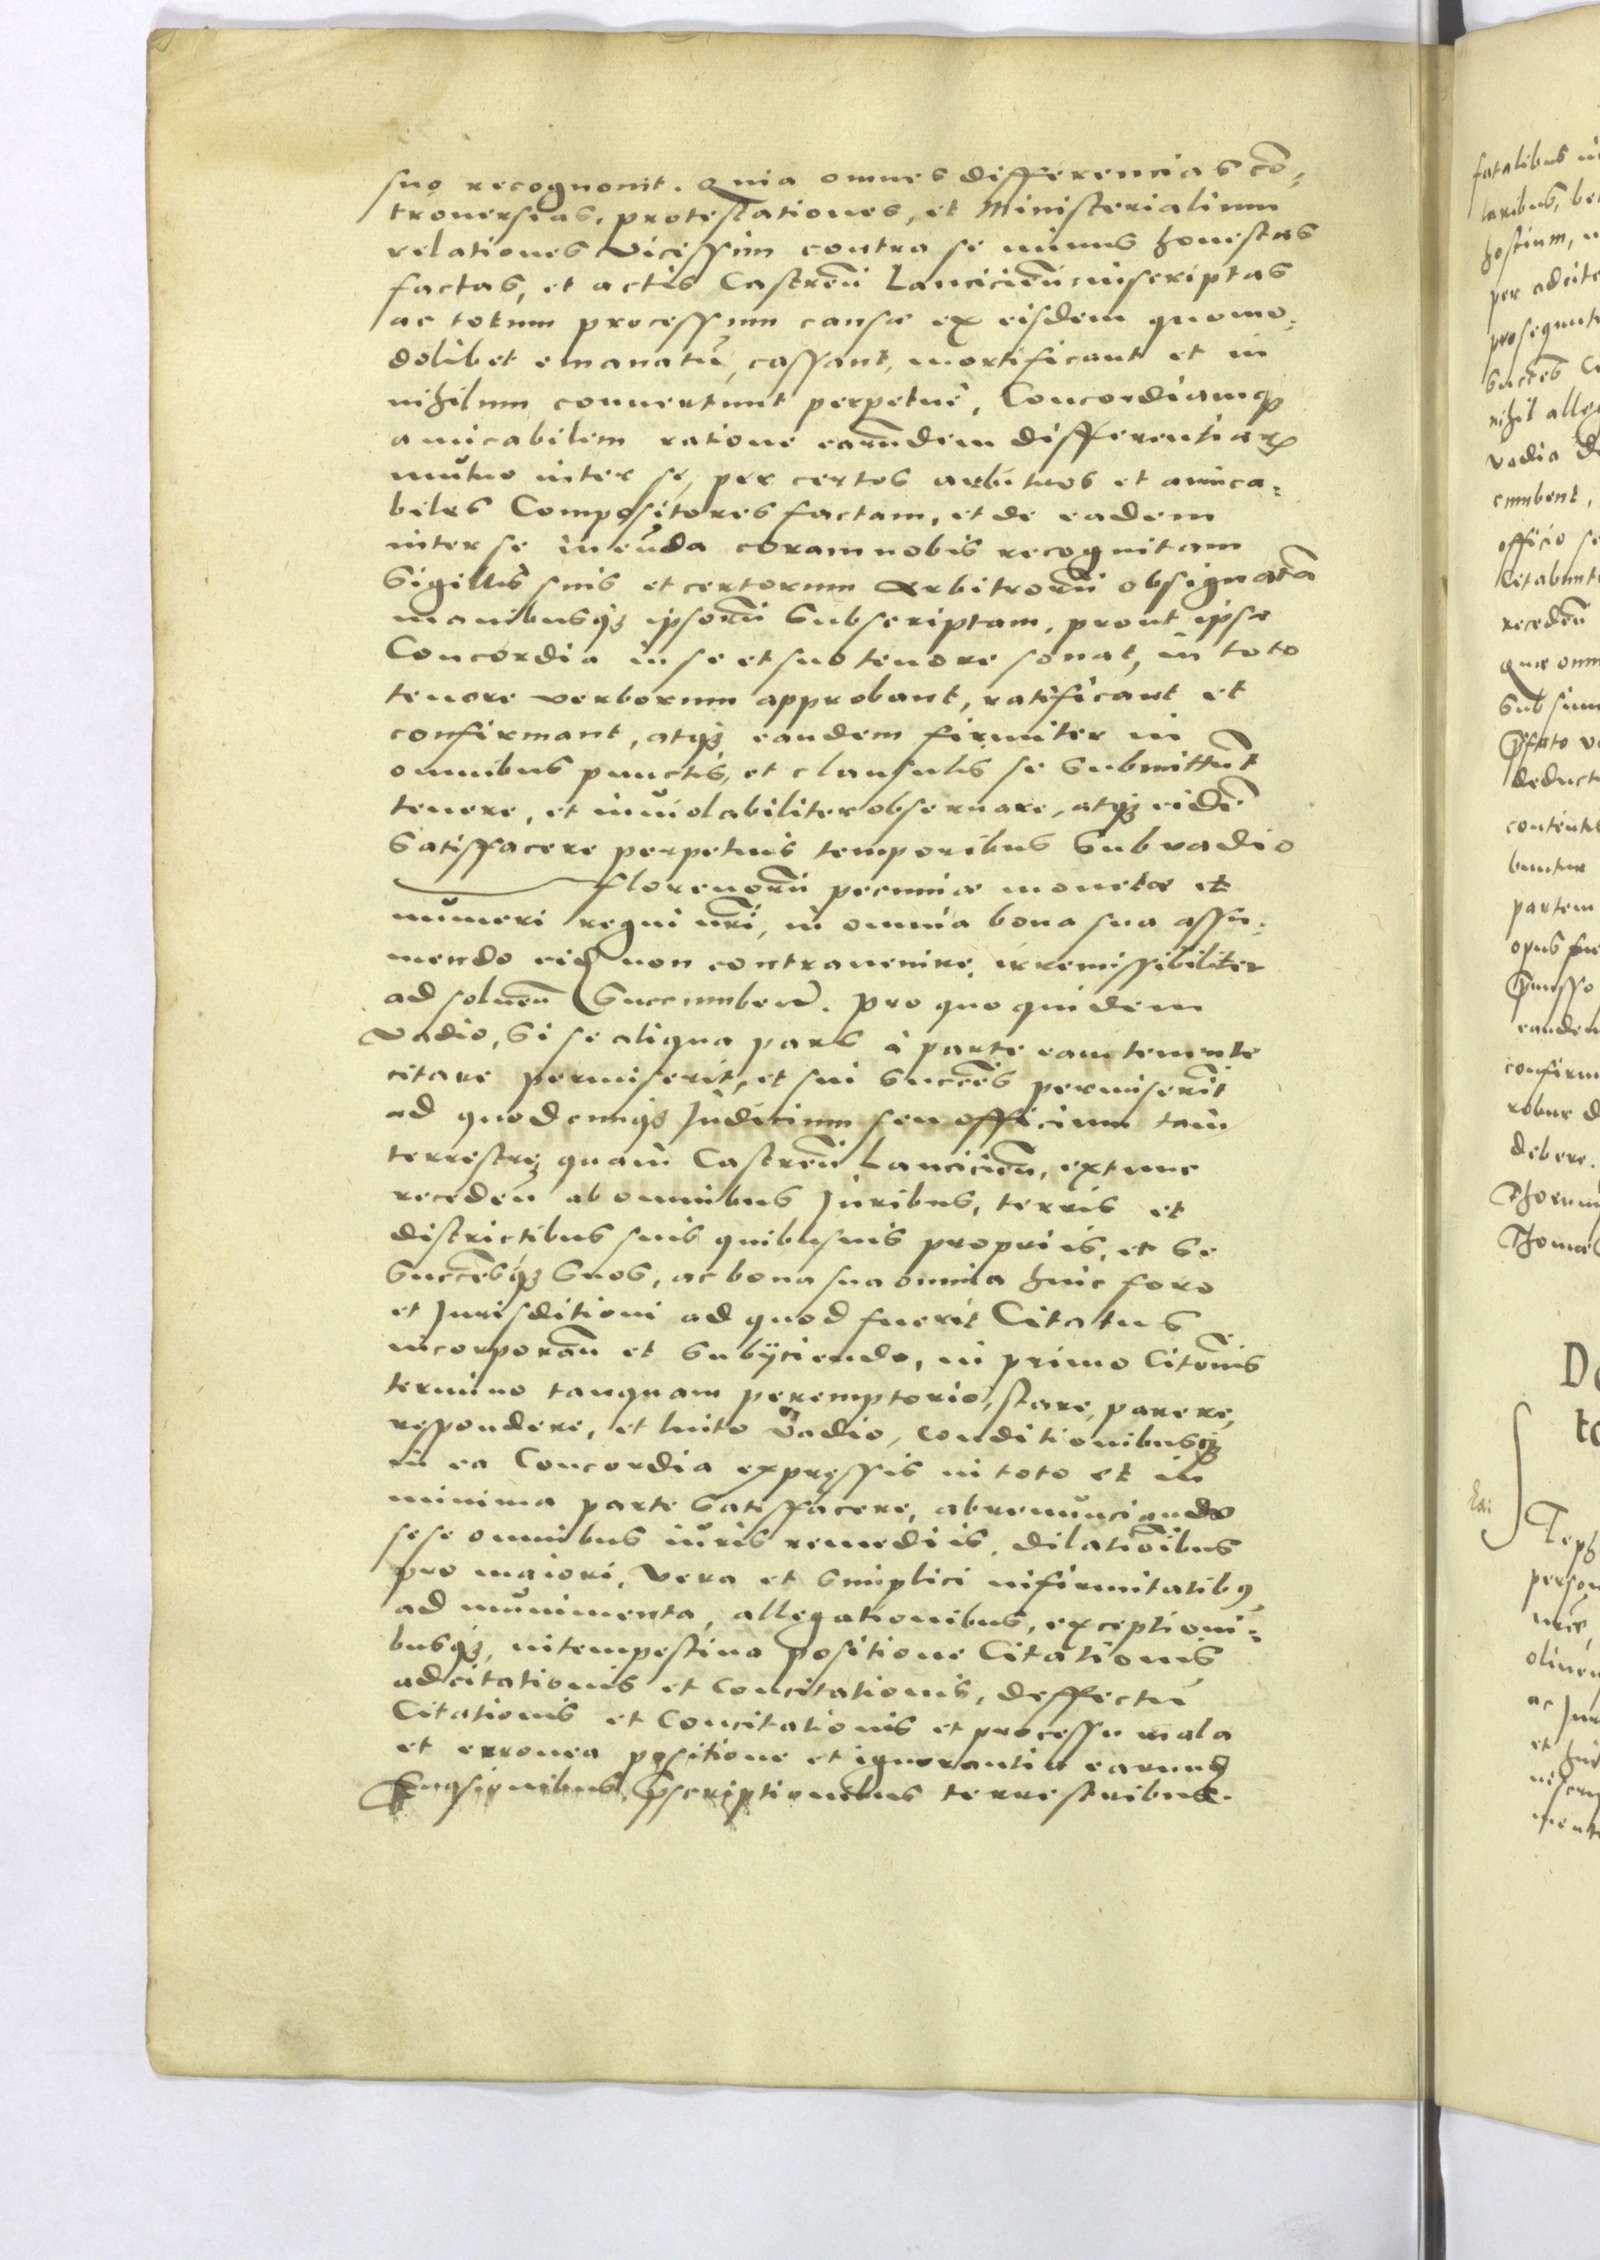 suo recognouit. Quia omnes differencias cō,
trouersias, protestationes, et Ministerialium
relationes vicissim contra se minus honestas
factas, et actis Castreñ Lanciciēn inscriptas
ac totum processum causæ ex eisdem quomo,
dolibet emanatū, cassant, mortificant et in
nihilum conuertunt perpetuè, Concordiamq3
amicabilem ratione earundem differentiarꝝ
mutuo inter se, per certos arbitros et amica,
biles Compositores factam, et de eadem
inter se ineunda coram nobis recognitam
Sigillis suis et certorum Arbitrorū obsignatā
manibusq3 ipsorū Subscriptam, prout ipsa
Concordia in se et suo tenore sonat, in toto
tenore verborum approbant, ratificant et
confirmant, atq3 eandem firmiter in
omnibus punctis, et clausulis se submittūt
tenere, et inuiolabiliter obseruare, atq3 eidē
Satisfacere perpetuis temporibus Sub vadio
florenorū pecuniæ monetæ et
numeri regni nr̄i, in omnia bona sua assu,
mendo eid non contrauenire, irremissibiliter
ad soluēn Succumbeñ. pro quo quidem
Vadio, Si se aliqua pars à parte eam tenente
citare permiserit, et sui Succēs permiserīt
ad quodcunq3 Judicium seu officium tam
terrestre quam Castrēn Lanciciēn, extunc
recedeñ ab omnibus Juribus, terris et
districtibus suis quibusuis propriis, et Se
Succēsq3 Suos, ac bona sua omnia huic foro
et Jurisditioni ad quod fuerit Citatus
incorporañ et Subijciendo, in primo Citōnis
termino tanquam peremptorio, stare, parere,
respondere, et luito Vadio, Conditionibusq3
in ea Concordia expressis in toto et in
minima parte Satisfacere, abrenunciando
sese omnibus iuris remediis, dilatiōibus
pro maiori, Vera et Simplici infirmitatibꝰ,
ad munimenta, allegationibus, exceptioni,
busq3, intempestiua positione Citationis
adcitationis et Concitationis, deffectu
Citationis et Concitationis et processu mala
et erronea positione et ignorantia earund
Euasionibus, p̄scriptionibus terrestribus.